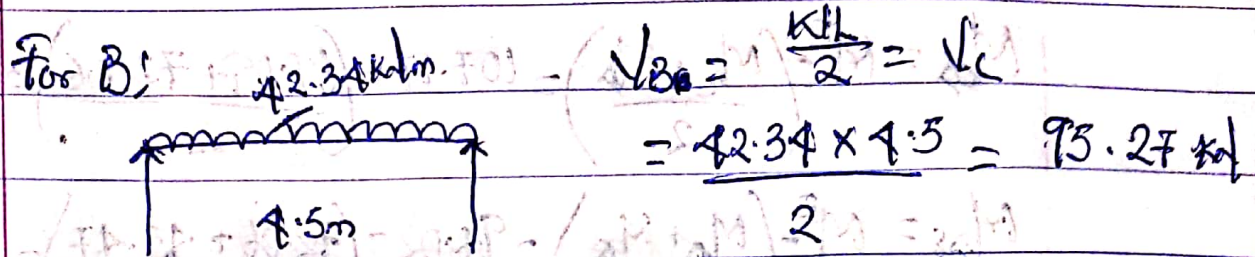 For B:
42.34 kN/m.
4.5m
V_B = KL/2 = V_C
= 42.34 x 4.5 / 2 = 95.27 kN